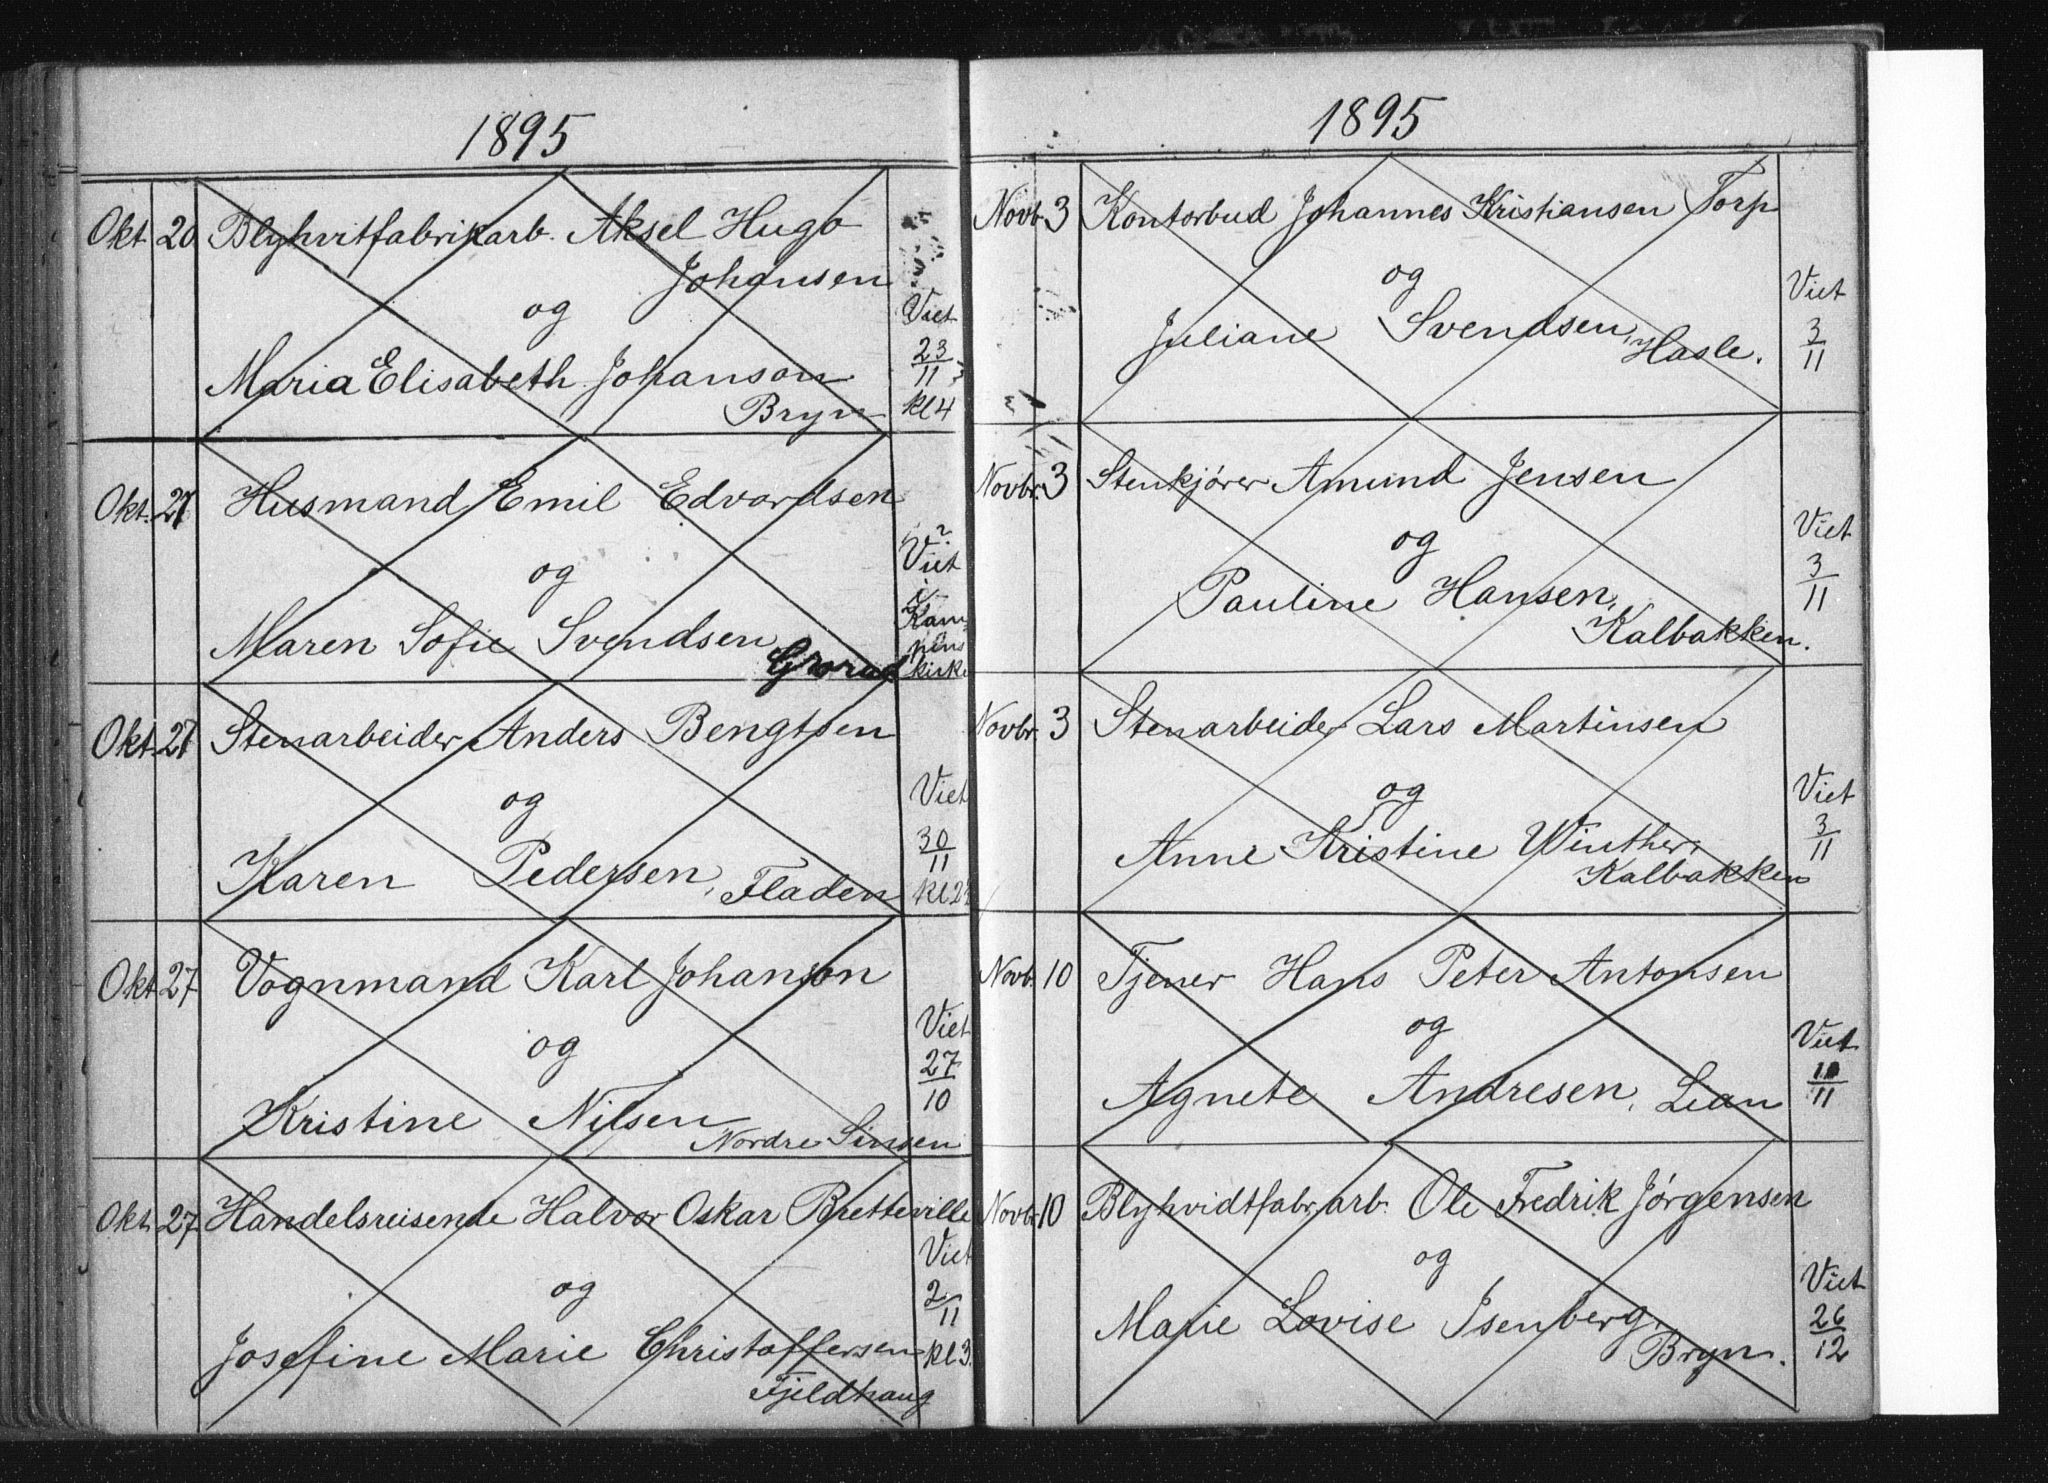 1895
Okt. 20 Blyhvitfabrikarb. Aksel Hugo
Johansen
og
Maria Elisabeth Johanson
Bryn
Viet
23/11
kl 4
Okt. 27 Husmand Emil Edvardsen
og
Maren Sofie Svendsen
Grorud
Viet
i
Kam-
pens
kirke
Okt. 27 Stenarbeider Anders Bengtsen
og
Karen Pedersen, Fladen
Viet
30/11
Okt. 27 Vognmand Karl Johanson
og
Kristine Nilsen
Nordre Sinsen
Viet
27/10
Okt. 27 Handelsreisende Halvor Oskar Bretteville
og
Josefine Marie Christoffersen
Fjeldhaug
Viet
2/11
kl 3
1895
Novb. 3 Kontorbud Johannes Kristiansen Torp
og
Juliane Svendsen, Hasle.
Viet
3/11
Novbr. 3 Stenkjører Amund Jensen
og
Pauline Hansen,
Kalbakken.
Viet
3/11
Novbr. 3 Stenarbeider Lars Martinsen
og
Anne Kristine Winther,
Kalbakken
Viet
3/11
Novb. 10 Tjener Hans Peter Antonsen
og
Agnete Andresen, Lian
Viet
10/11
Novbr. 10 Blyhvidtfabr.arb. Ole Fredrik Jørgensen
og
Marie Lovise Isenberg,
Bryn.
Viet
26/12